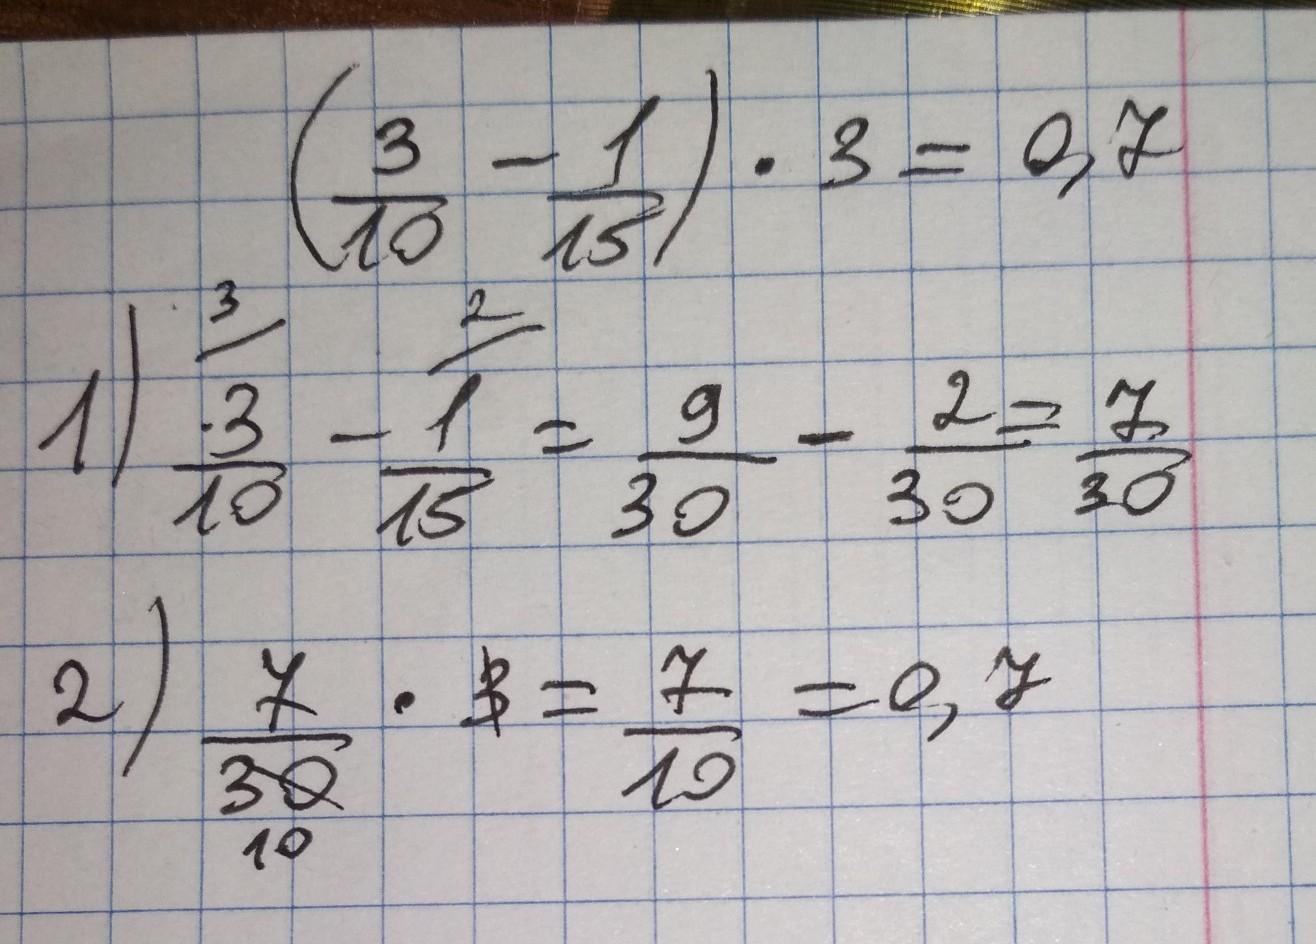 (3/10 - 1/15) · 3 = 0,7
1) 3/10 (3) - 1/15 (2) = 9/30 - 2/30 = 7/30
2) 7/30 (10) · 3 = 7/10 = 0,7